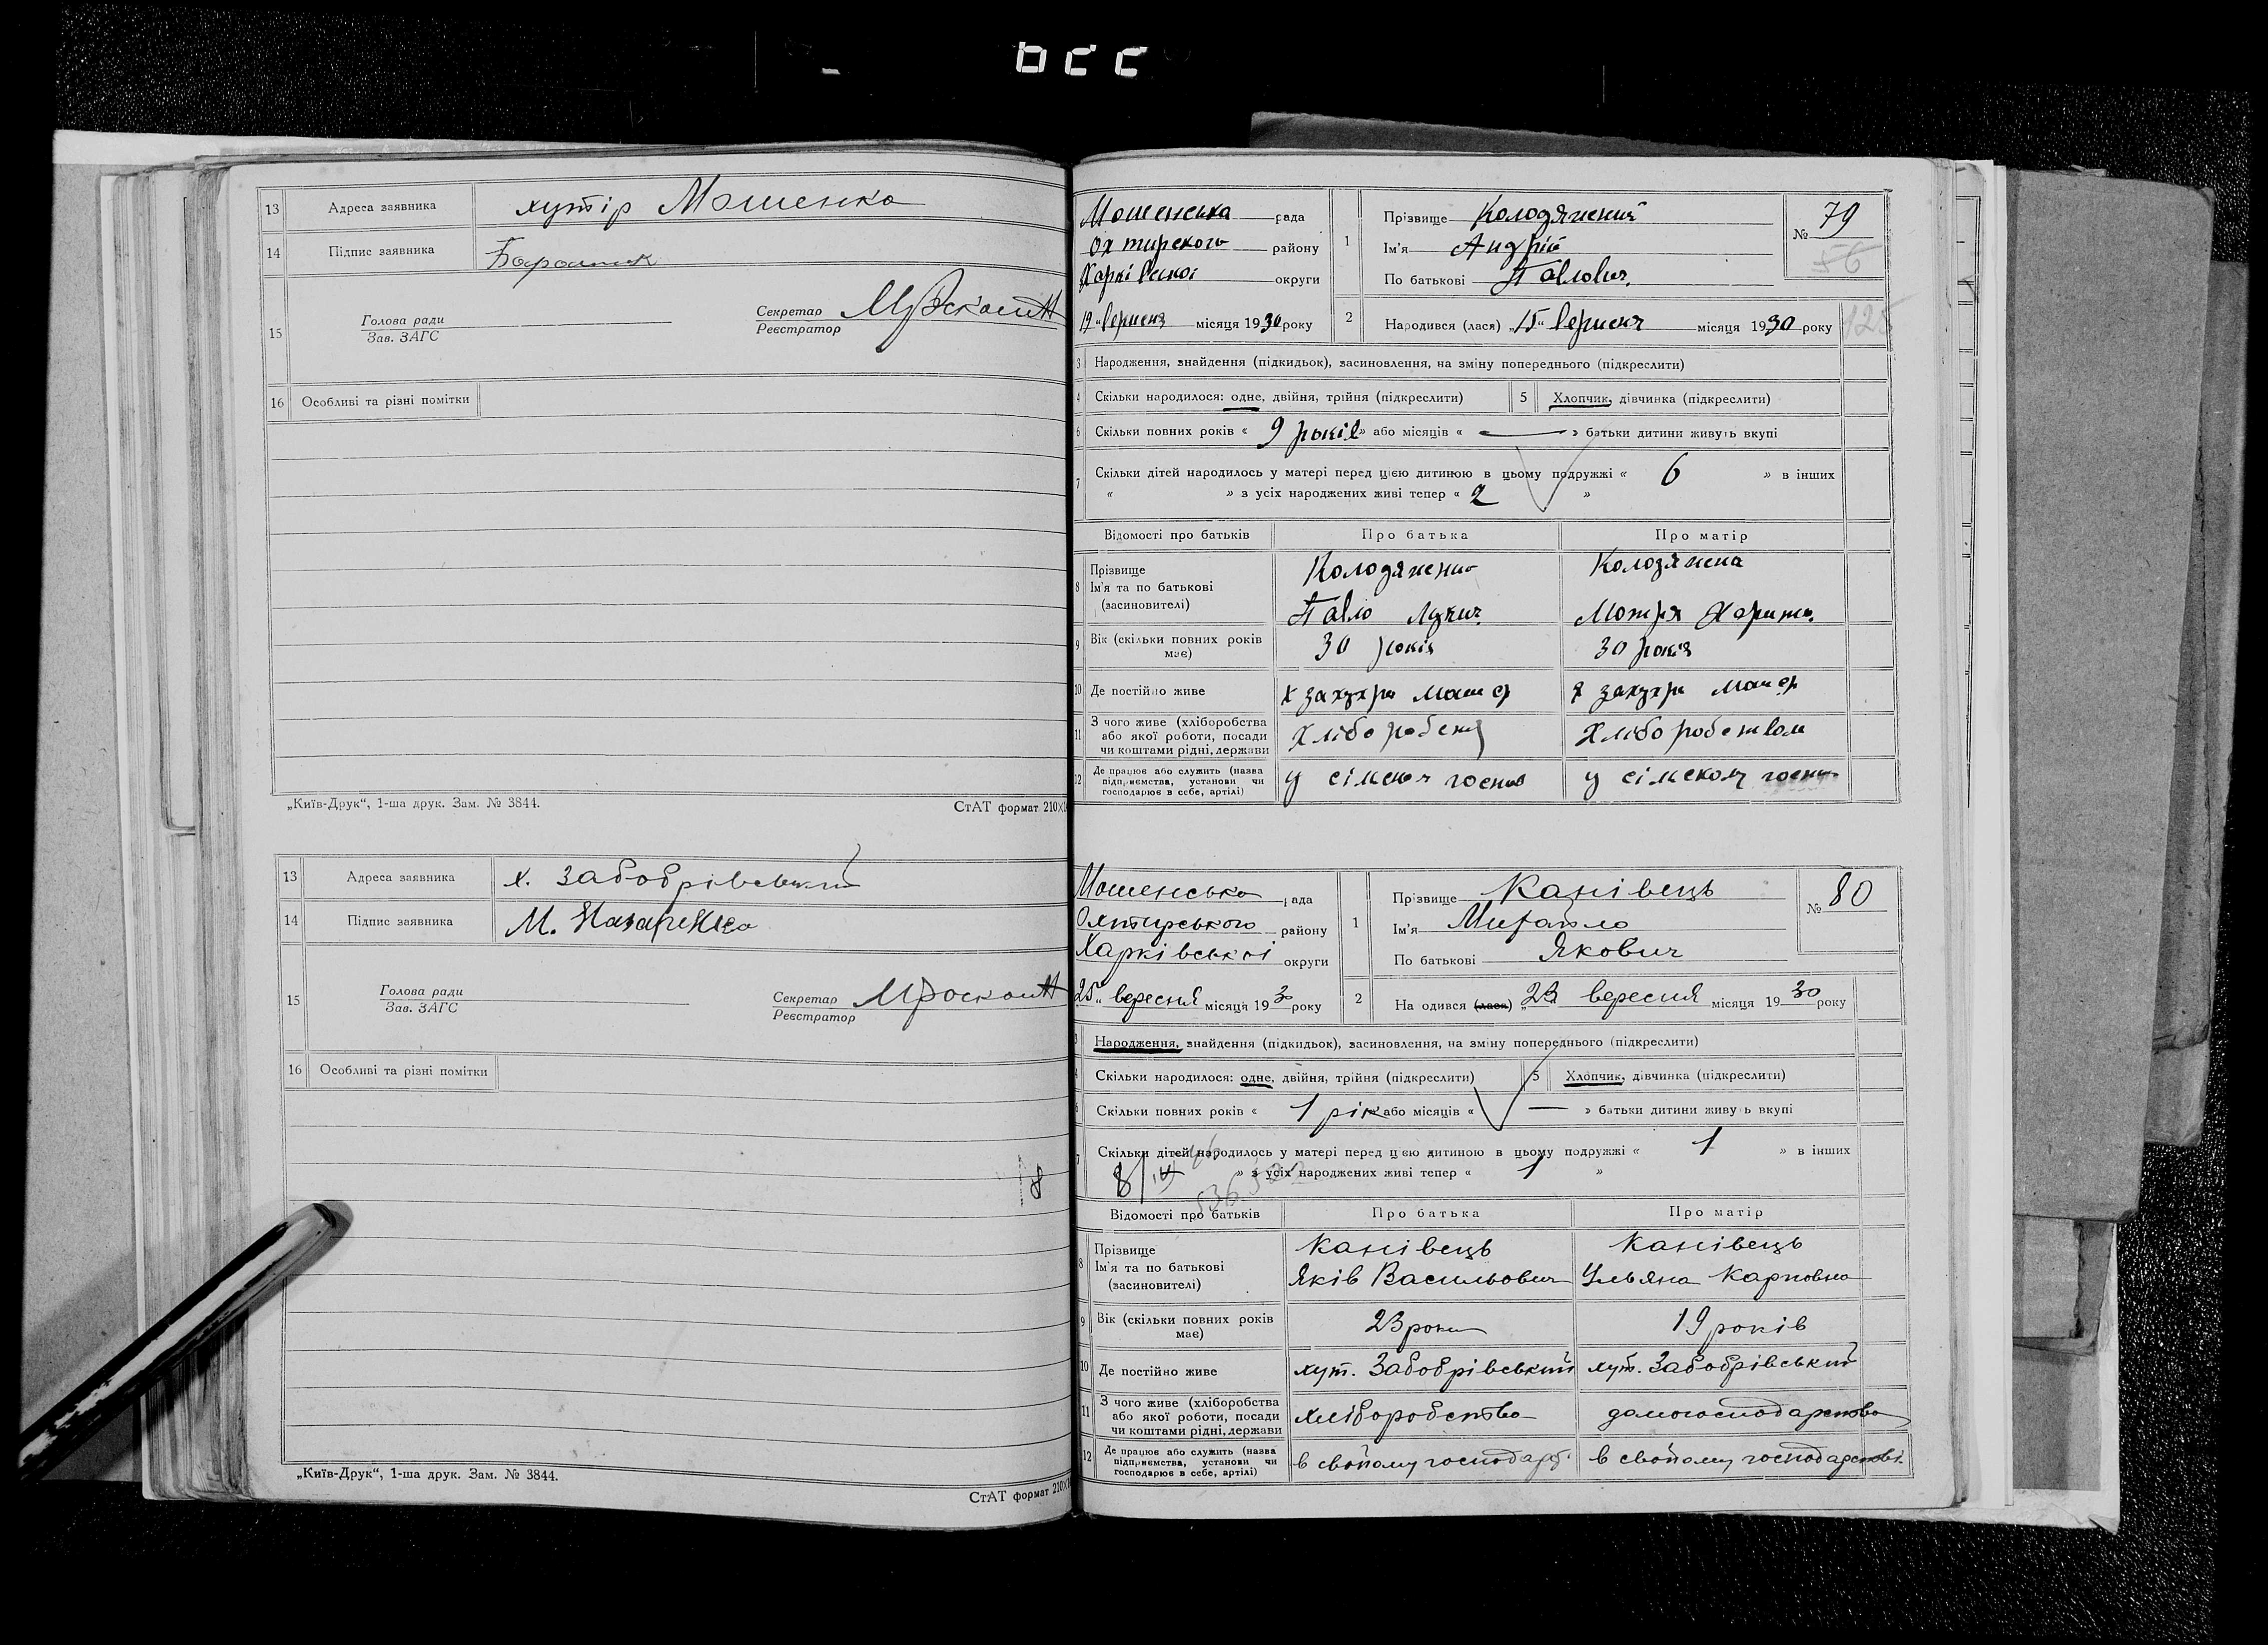 13 Адреса заявника хутір Мошенка
14 Підпис заявника
15 Голова ради Секретар
Зав. ЗАГС Реєстратор
16 Особливі та різні помітки
„Київ-Друк“, 1-ша друк. Зам. № 3844. СтАТ формат 210×1
13 Адреса заявника х. Забобрівський
14 Підпис заявника М. Назаренко
15 Голова ради Секретар
Зав. ЗАГС Реєстратор
16 Особливі та різні помітки
18
„Київ-Друк“, 1-ша друк. Зам. № 3844.
СтАТ формат 210×1
Мошенська рада 1 Прізвище Колодяжний № 79
Охтирского району Ім'я Андрій 56
Харківської округи По батькові Павлович.
19 „ вересня місяця 1930 року 2 Народився (лася) „15“ вересня місяця 1930 року 125
3 Народження, знайдення (підкидьок), засиновлення, на зміну попереднього (підкреслити)
4 Скільки народилося: одне, двійня, трійня (підкреслити) 5 Хлопчик, дівчинка (підкреслити)
6 Скільки повних років « 9 років » або місяців « — » батьки дитини живуть вкупі
7 Скільки дітей народилось у матері перед цією дитиною в цьому подружжі « 6 » в інших
« » з усіх народжених живі тепер « 2 »
Відомості про батьків Про батька Про матір
8 Прізвище Колодяжний Колодяжна
Ім'я та по батькові
(засиновителі) Павло Лукич. Мотря Харит.
9 Вік (скільки повних років має) 30 років 30 років
10 Де постійно живе
11 З чого живе (хліборобства
або якої роботи, посади Хліборобством
чи коштами рідні, держави
12 Де працює або служить (назва
підприємства, установи чи
господарює в себе, артілі) у сілском
Мошенська рада 1 Прізвище Канівець № 80
Охтирського району Ім'я Михайло
Харківської округи По батькові Якович
25 „ вересня місяця 1930 року 2 На одився (лася) „23 вересня місяця 1930 року
3 Народження, знайдення (підкидьок), засиновлення, на зміну попереднього (підкреслити)
4 Скільки народилося: одне, двійня, трійня (підкреслити) 5 Хлопчик, дівчинка (підкреслити)
6 Скільки повних років « 1 рік » або місяців « — » батьки дитини живуть вкупі
7 Скільки дітей народилось у матері перед цією дитиною в цьому подружжі « 1 » в інших
8/IV » з усіх народжених живі тепер « 1 »
Відомості про батьків Про батька Про матір
8 Прізвище Канівець Канівець
Ім'я та по батькові Яків Васильович Ульяна Карповна
(засиновителі)
9 Вік (скільки повних років має) 23 роки 19 років
10 Де постійно живе хут. Забобрівський хут. Забобрівський
11 З чого живе (хліборобства
або якої роботи, посади хліборобство домогосподарство
чи коштами рідні, держави
12 Де працює або служить (назва
підприємства, установи чи в свойому господар. в свойому господарстві.
господарює в себе, артілі)